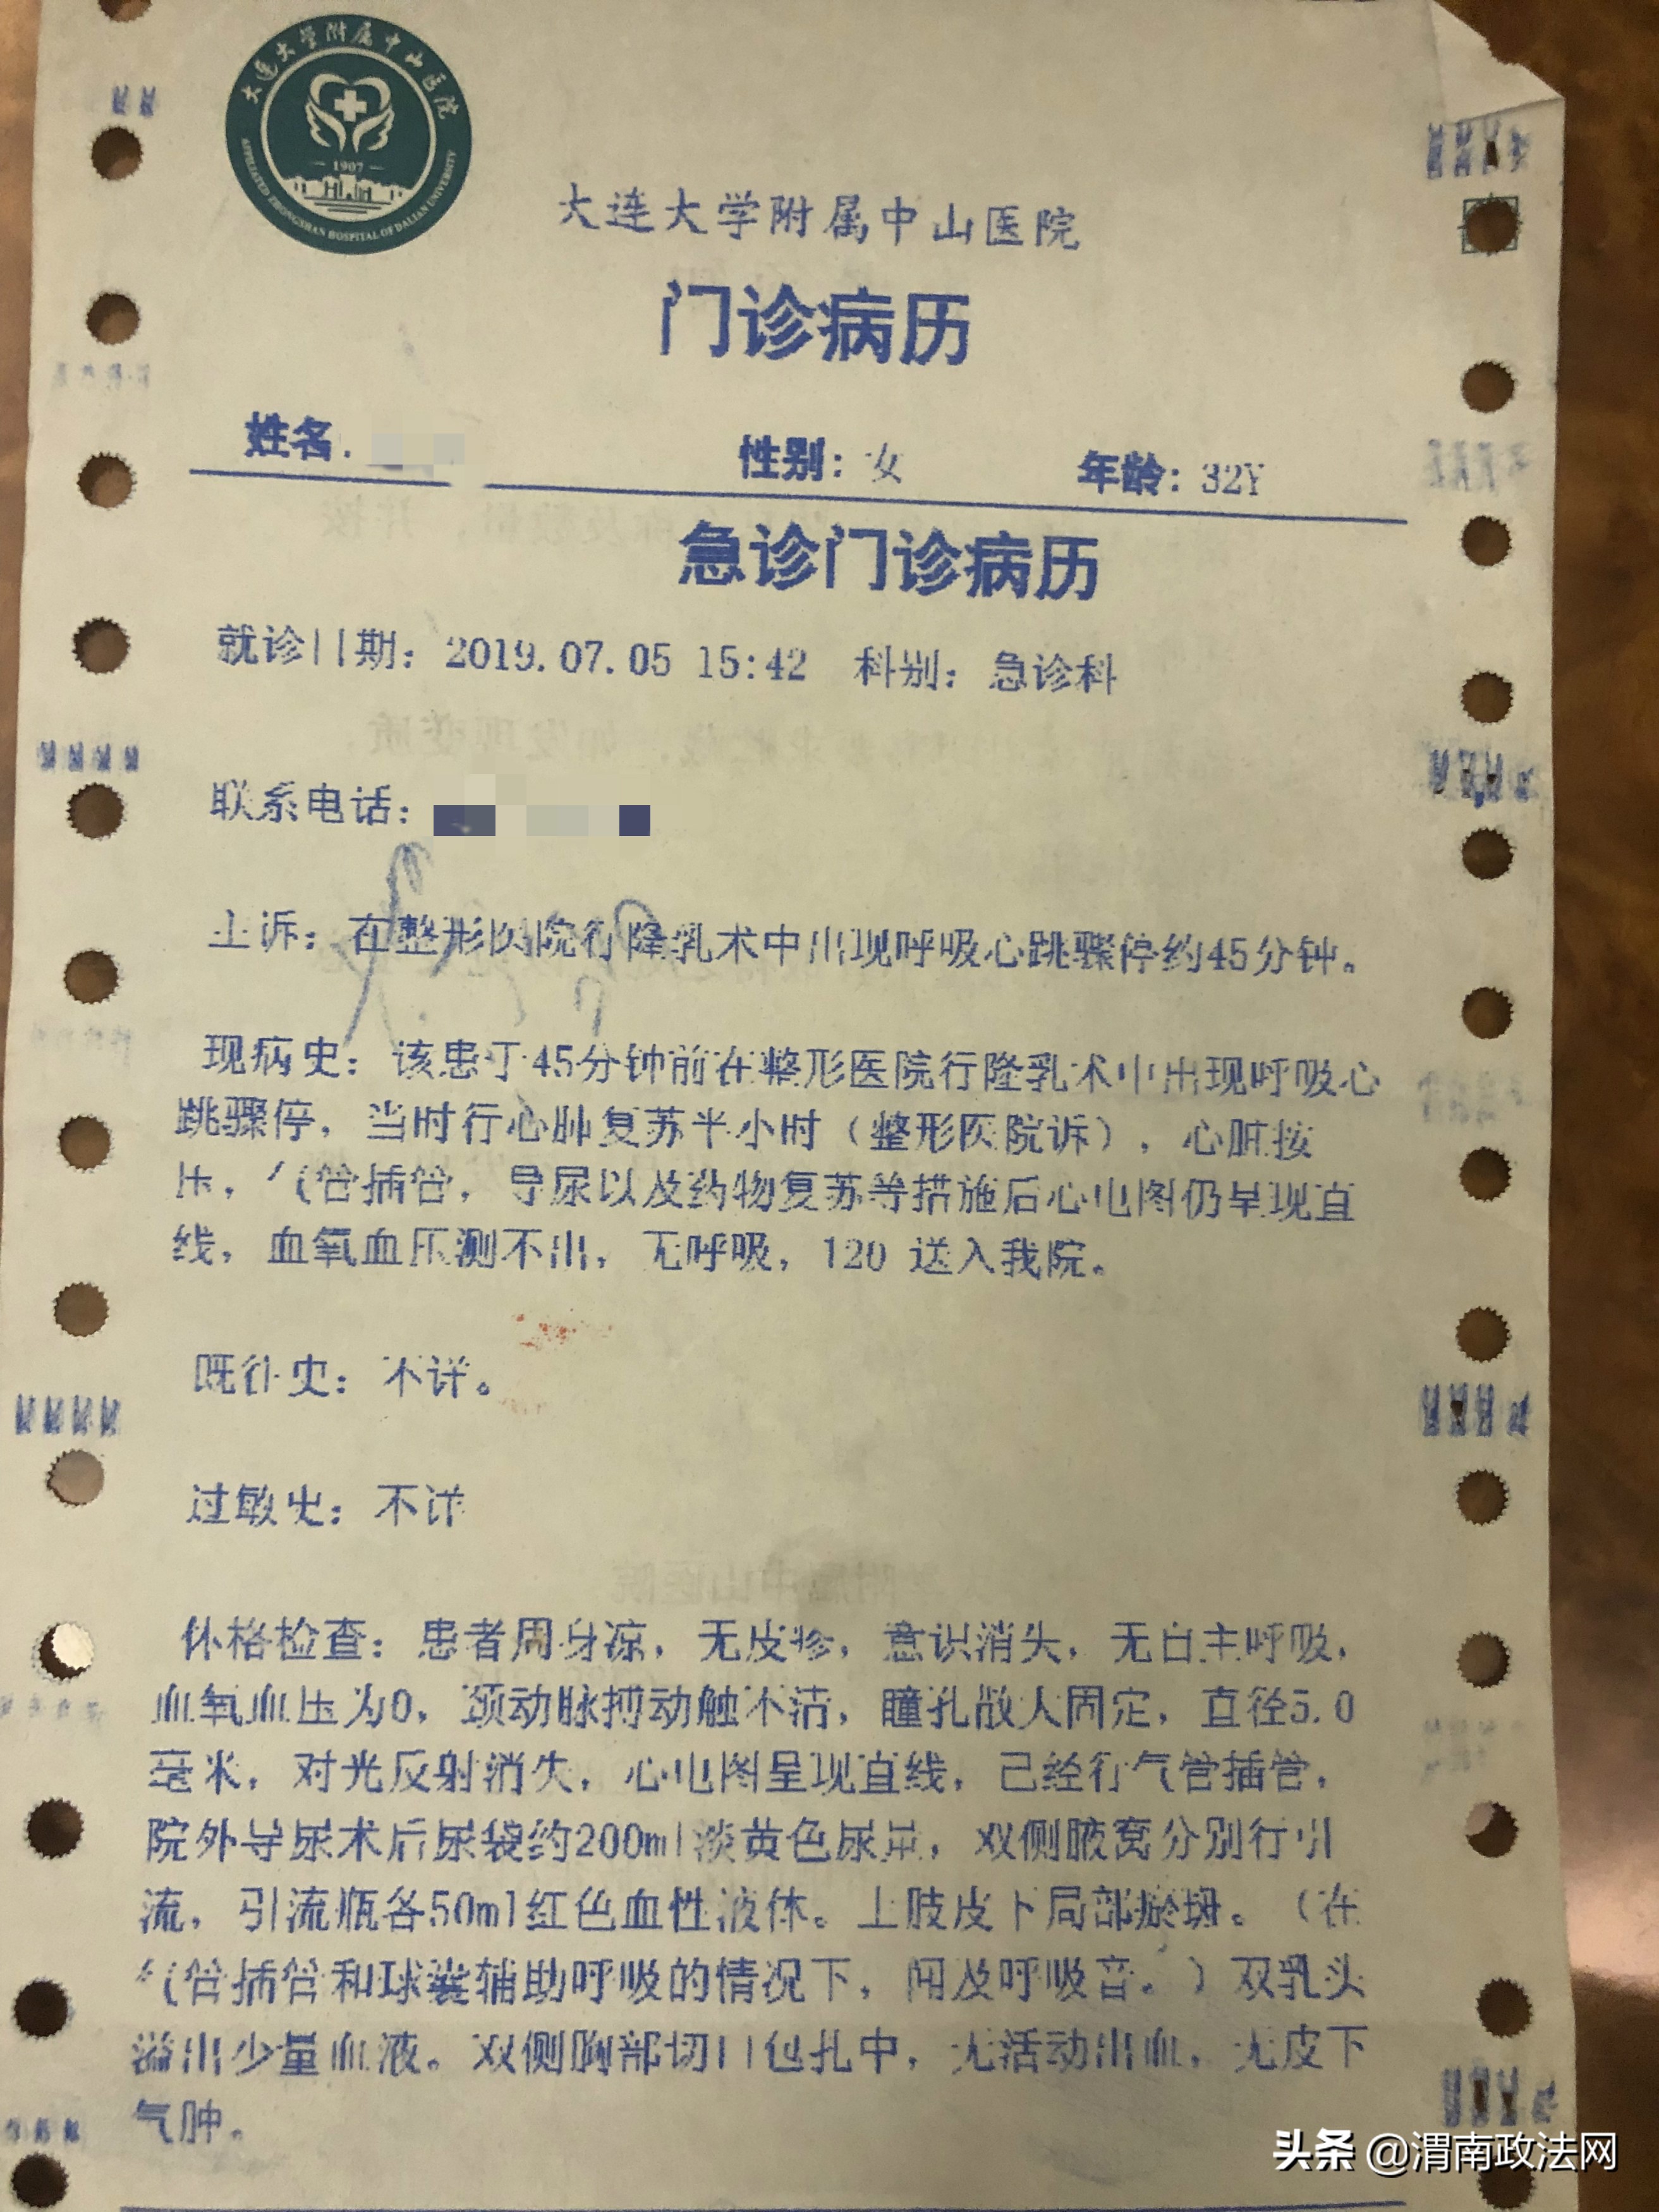 大连大学附属中山医院
1907
AFFILIATED ZHONGSHAN HOSPITAL OF DALIAN UNIVERSITY
大连大学附属中山医院
门诊病历
姓名: 性别: 女 年龄: 32Y
急诊门诊病历
就诊日期: 2019.07.05 15:42 科别: 急诊科
联系电话:
主诉: 在整形医院行隆乳术中出现呼吸心跳骤停约45分钟。
现病史: 该患于45分钟前在整形医院行隆乳术中出现呼吸心
跳骤停, 当时行心肺复苏半小时 (整形医院诉), 心脏按
压, 气管插管, 导尿以及药物复苏等措施后心电图仍呈现直
线, 血氧血压测不出, 无呼吸, 120 送入我院。
既往史: 不详。
过敏史: 不详
体格检查: 患者周身凉, 无皮疹, 意识消失, 无自主呼吸,
血氧血压为0, 颈动脉搏动触不清, 瞳孔散大固定, 直径5.0
毫米, 对光反射消失, 心电图呈现直线, 已经行气管插管,
院外导尿术后尿袋约200ml淡黄色尿量, 双侧腋窝分别行引
流, 引流瓶各50ml红色血性液体。上肢皮下局部瘀斑。(在
气管插管和球囊辅助呼吸的情况下, 闻及呼吸音。) 双乳头
溢出少量血液。双侧胸部切口包扎中, 无活动出血, 无皮下
气肿。
头条 @渭南政法网